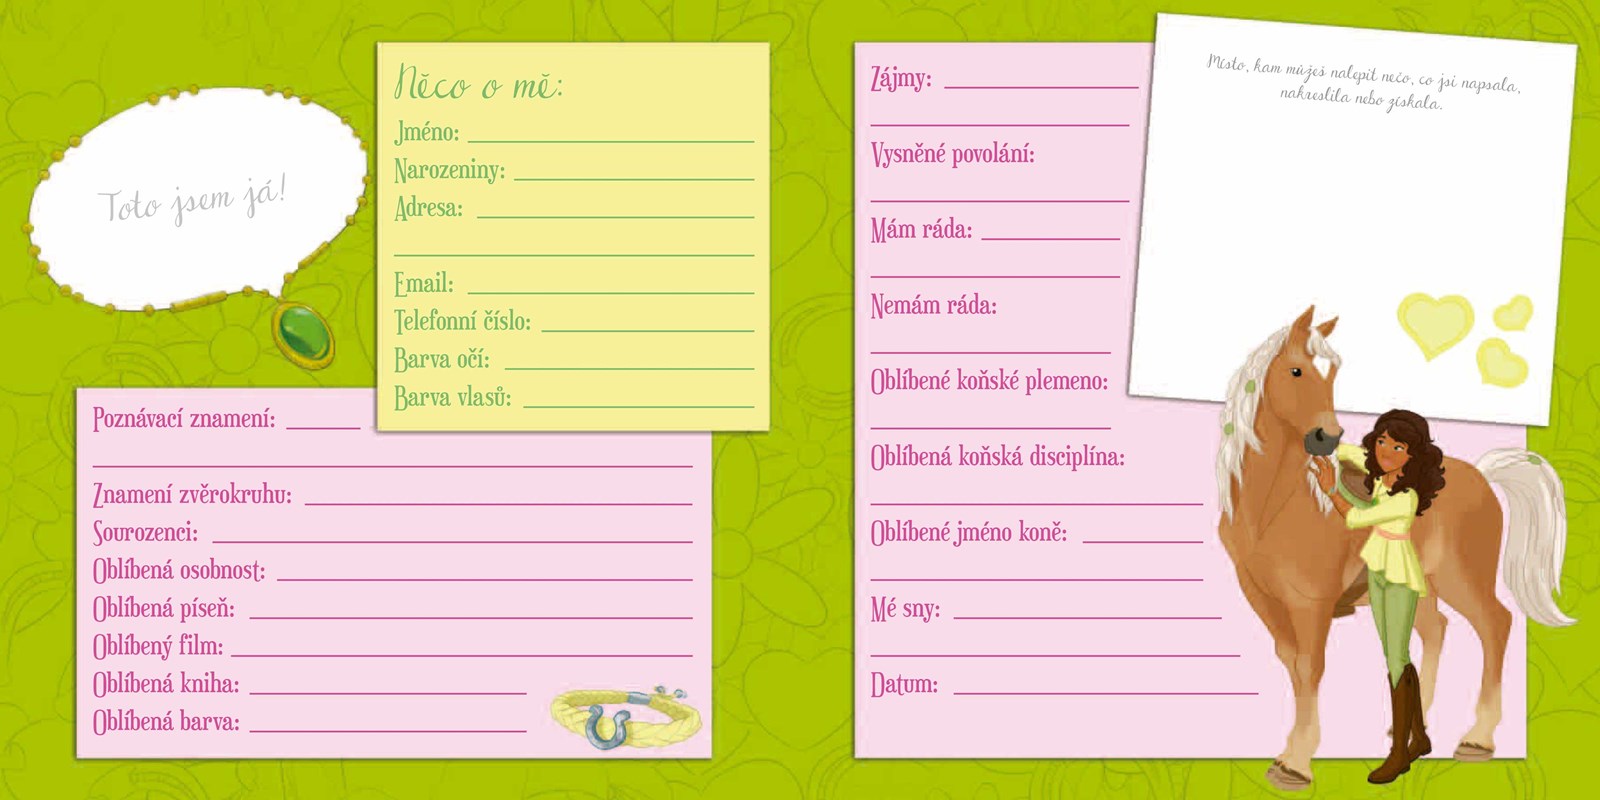 Toto jsem já!
Něco o mě:
Jméno:
Narozeniny:
Adresa:
Email:
Telefonní číslo:
Barva očí:
Barva vlasů:
Poznávací znamení:
Znamení zvěrokruhu:
Sourozenci:
Oblíbená osobnost:
Oblíbená píseň:
Oblíbený film:
Oblíbená kniha:
Oblíbená barva:
Zájmy:
Vysněné povolání:
Mám ráda:
Nemám ráda:
Oblíbené koňské plemeno:
Oblíbená koňská disciplína:
Oblíbené jméno koně:
Mé sny:
Datum:
Místo, kam můžeš nalepit něco, co jsi napsala,
nakreslila nebo získala.